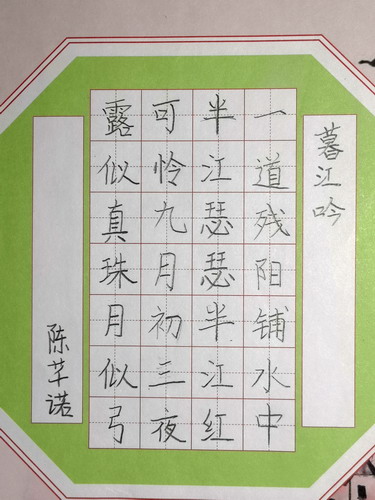 暮江吟
一道残阳铺水中
半江瑟瑟半江红
可怜九月初三夜
露似真珠月似弓
陈芊诺